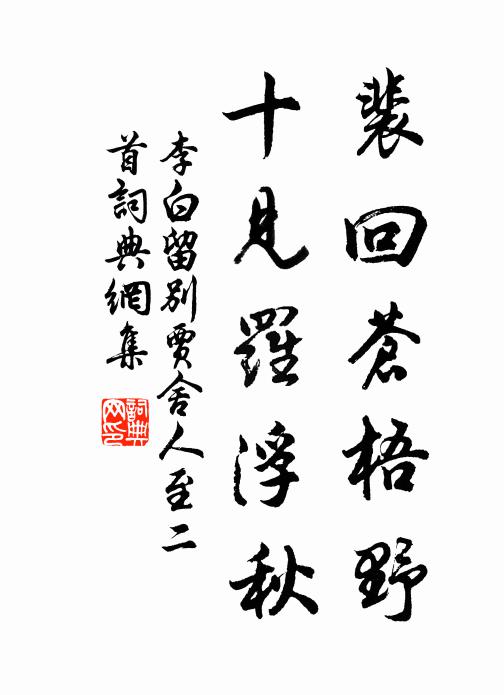 裴回蒼梧野
十見羅浮秋
李白留別賈舍人至二
首詞典網集
詞典
网印